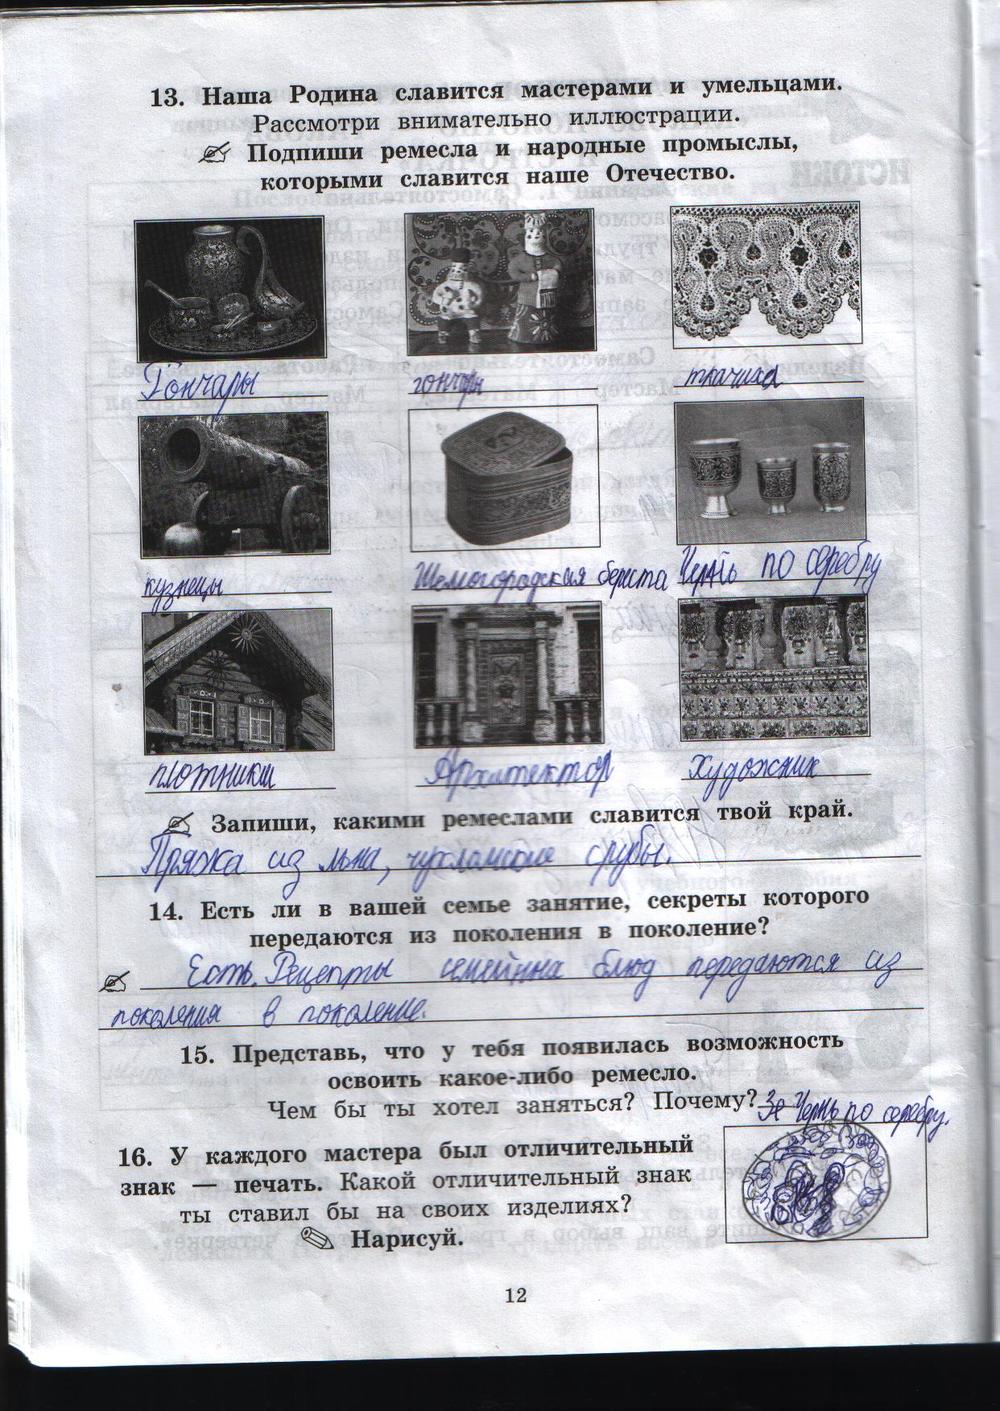 13. Наша Родина славится мастерами и умельцами.
Рассмотри внимательно иллюстрации.
Подпиши ремесла и народные промыслы,
которыми славится наше Отечество.
ИСТОКИ
Гончары
гончары
ткачиха
кузнецы
Шемогородская береста
Чернь по серебру
плотники
Архитектор
Художник
Запиши, какими ремеслами славится твой край.
Пряжа из льна, чухломские срубы.
14. Есть ли в вашей семье занятие, секреты которого
передаются из поколения в поколение?
Есть. Рецепты семейна блюд передаются из
поколения в поколение.
15. Представь, что у тебя появилась возможность
освоить какое-либо ремесло.
Чем бы ты хотел заняться? Почему? Чернь по серебру.
16. У каждого мастера был отличительный
знак — печать. Какой отличительный знак
ты ставил бы на своих изделиях?
Нарисуй.
12